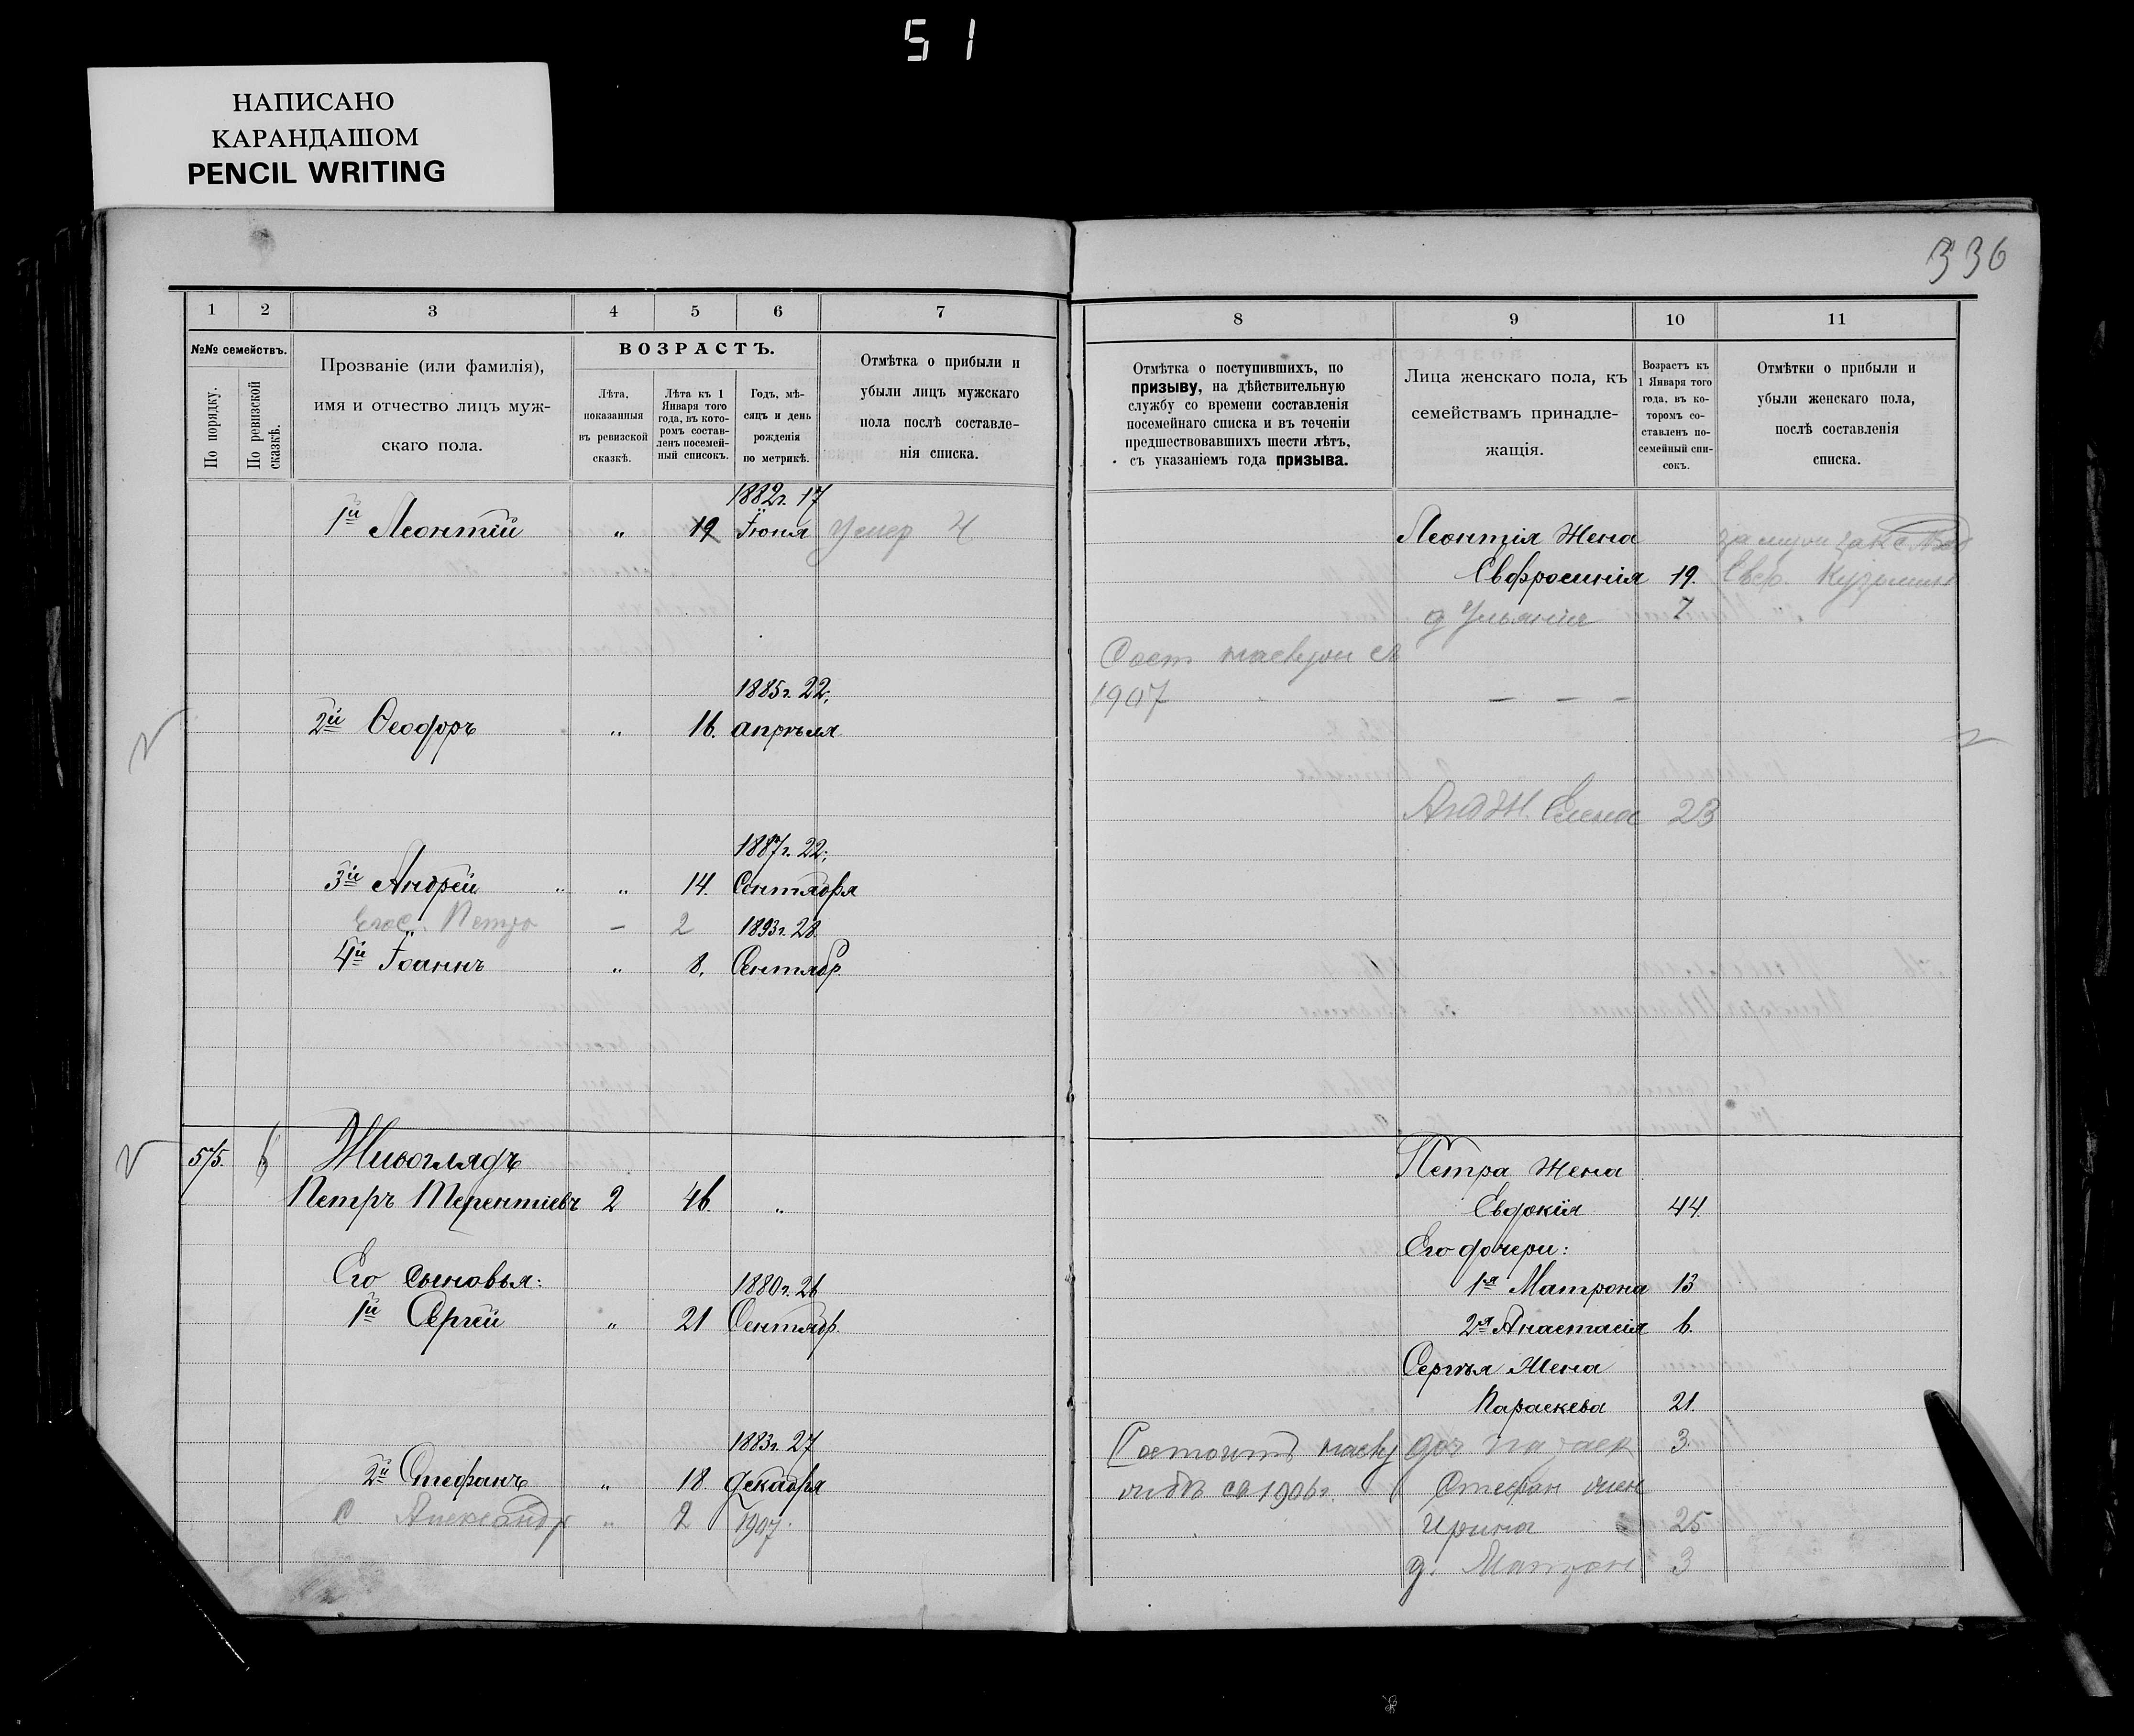 51
НАПИСАНО
КАРАНДАШОМ
PENCIL WRITING
336
1
2
3
4
5
6
7
№№ семействъ.
По порядку.
По ревизской сказкѣ.
Прозваніе (или фамилія),
имя и отчество лицъ муж-
скаго пола.
ВОЗРАСТЪ.
Лѣта,
показанныя
въ ревизской
сказкѣ.
Лѣта къ 1
Января того
года, въ кото-
ромъ состав-
ленъ посемей-
ный списокъ.
Годъ, мѣ-
сяцъ и день
рожденія
по метрикѣ.
Отмѣтка о прибыли и
убыли лицъ мужскаго
пола послѣ составле-
нія списка.
1882г. 17
1й Леонтій " 19 Іюня умер
1885г. 22,
2й Ѳеодоръ " 16. апрѣля
1887г. 22,
3й Андрей " " 14. Сентября
Его с. Петро - 2 1893г. 28.
4й Іоаннъ " 8. Сентябр
5/5. 6 Живоглядъ
Петръ Терентіевъ 2 46. "
Его сыновья: 1880г. 26
1й Сергій " 21 Сентябр.
1883г. 27
2й Стефанъ " 18. Декабря
с Александр " 2 1907.
8
9
10
11
Отмѣтка о поступившихъ, по
призыву, на дѣйствительную
службу со времени составленія
посемейнаго списка и въ теченіи
предшествовавшихъ шести лѣтъ,
съ указаніемъ года призыва.
Лица женскаго пола, къ
семействамъ принадле-
жащія.
Возрастъ къ
1 Января того
года, въ ко-
торомъ со-
ставленъ по-
семейный спи-
сокъ.
Отмѣтки о прибыли и
убыли женскаго пола,
послѣ составленія
списка.
Леонтія Жена
Евфросинія 19.
д Ульяния 7
Сост
1907 - - -
Анд Ж. Елена 23
Петра Жена
Евдокія 44.
Его дочери:
1я Матрона 13
2я Анастасія 6.
Сергѣя Жена
Параскева 21.
Состоитъ доч 3.
съ 1906г. Стефан жен
Ирина 25
д. Матрон 3